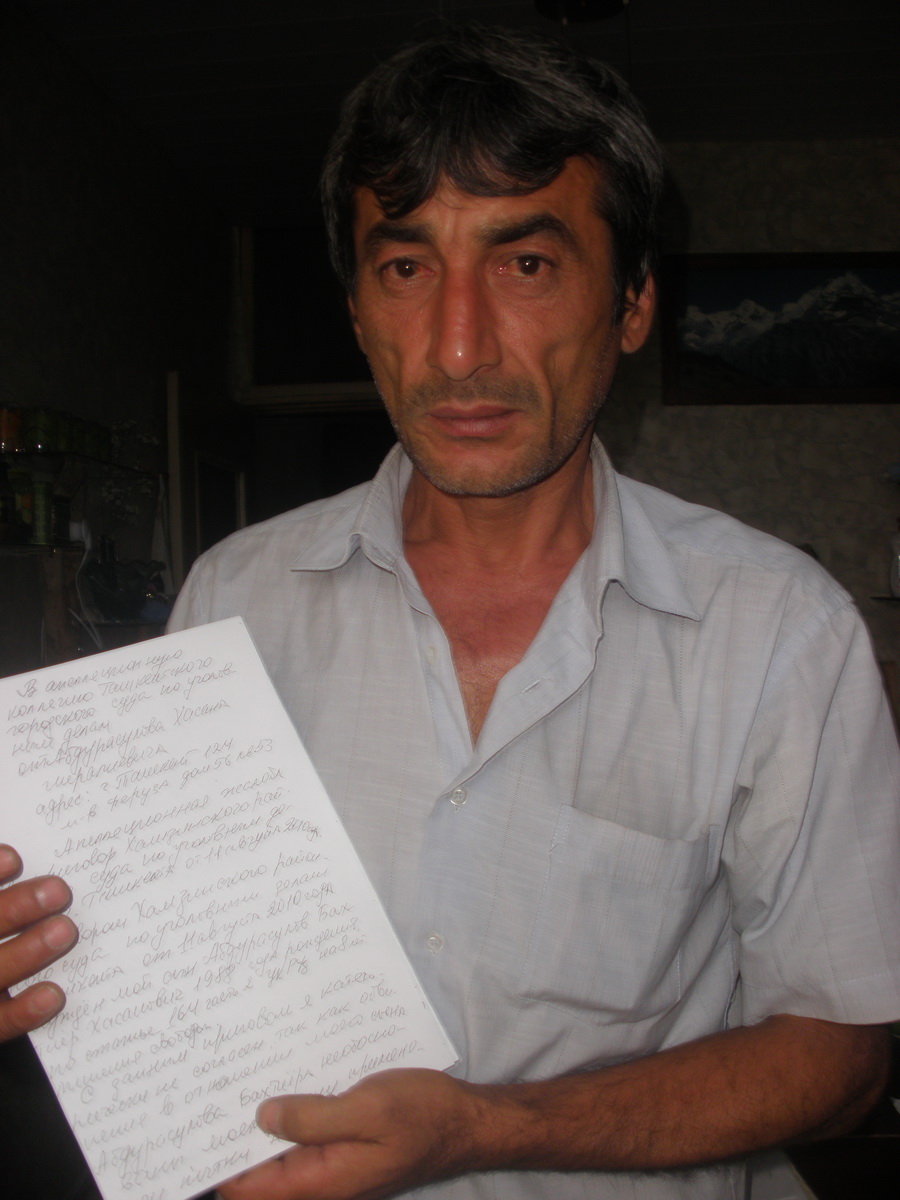 В апелляционную
коллегию Ташкентского
городского суда по уголов-
ным делам
от Абдурасулова Хасана
адрес: г. Ташкент 124
м-в Феруза дом
Апелляционная жалоба
приговор Хамзинского рай.
суда по уголовным де-
Ташкента от 11 августа 2010 года
Хамзинского район-
ного суда по уголовным делам
от 11 августа 2010 года
мой сын Абдурасулов Бах-
тиёр Хасанович 1989 года рождения
по статье 164 части 2 УК РУз
лишения свободы
С данным приговором я катего-
рически не согласен, так как обви-
нение в отношении моего сына
Абдурасулова Бахтиёра необосно-